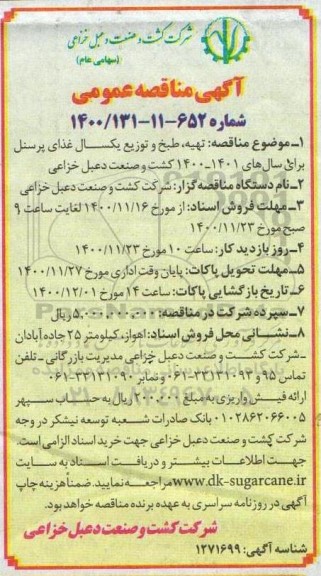 شرکت کشت و صنعت دعبل خزاعی
(سهامی عام)
آگهی مناقصه عمومی
شماره ۶۵۲-۱۱-۱۴۰۰/۱۳۱
۱ـ موضوع مناقصه: تهیه، طبخ و توزیع یکسال غذای پرسنل
برای سال‌های ۱۴۰۱ـ۱۴۰۰ کشت و صنعت دعبل خزاعی
۲ـ نام دستگاه مناقصه گزار: شرکت کشت و صنعت دعبل خزاعی
۳ـ مهلت فروش اسناد: از مورخ ۱۴۰۰/۱۱/۱۶ لغایت ساعت ۹
صبح مورخ ۱۴۰۰/۱۱/۲۳
۴ـ روز بازدید کار: ساعت ۱۰ مورخ ۱۴۰۰/۱۱/۲۳
۵ـ مهلت تحویل پاکات: پایان وقت اداری مورخ ۱۴۰۰/۱۱/۲۷
۶ـ تاریخ بازگشایی پاکات: ساعت ۱۴ مورخ ۱۴۰۰/۱۲/۰۱
۷ـ سپرده شرکت در مناقصه: ۵.۰۰۰.۰۰۰.۰۰۰ ریال
۸ـ نشانی محل فروش اسناد: اهواز، کیلومتر ۲۵ جاده آبادان
ـ شرکت کشت و صنعت دعبل خزاعی مدیریت بازرگانی ـ تلفن
تماس ۹۵ و ۰۶۱-۳۳۱۳۱۰۹۳ و نمابر ۰۶۱-۳۳۱۳۱۰۹۰
ارائه فیش واریزی به مبلغ ۲۰۰.۰۰۰ ریال به حساب سپهر
۰۱۰۲۸۶۲۰۶۶۰۰۵ بانک صادرات شعبه توسعه نیشکر در وجه
شرکت کشت و صنعت دعبل خزاعی جهت خرید اسناد الزامی است.
جهت اطلاعات بیشتر و دریافت اسناد به سایت
www.dk-sugarcane.ir مراجعه نمایید. ضمنا هزینه چاپ
آگهی در روزنامه سراسری به عهده برنده مناقصه خواهد بود.
شرکت کشت و صنعت دعبل خزاعی
شناسه آگهی: ۱۲۷۱۶۹۹